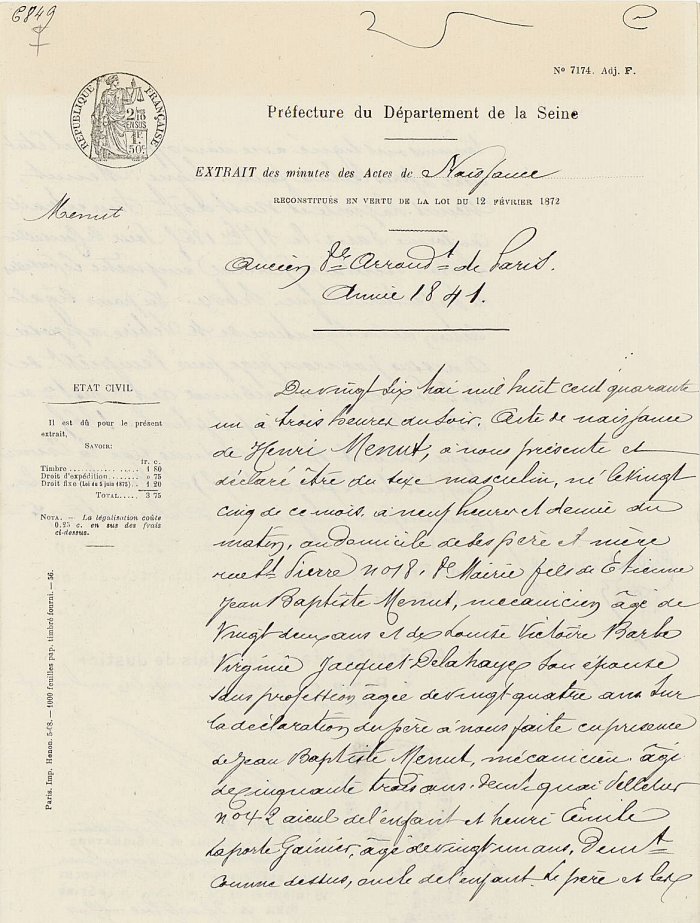 6849
No 7174. Adj. F.
RÉPUBLIQUE FRANÇAISE
2/10 EN SUS
1F. 50c.
Préfecture du Département de la Seine
EXTRAIT des minutes des Actes de Naissance
RECONSTITUÉS EN VERTU DE LA LOI DU 12 FÉVRIER 1872
Menut
Ancien 8e Arrondt de Paris.
Année 1841.
ETAT CIVIL
Il est dû pour le présent
extrait,
SAVOIR:
fr. c.
Timbre 1 80
Droit d'expédition » 75
Droit fixe (Loi du 5 juin 1875) 1 20
TOTAL 3 75
NOTA. — La légalisation coûte
0.25 c. en sus des frais
ci-dessus.
Paris. Imp. Henon. 5-08. — 1000 feuilles pap. timbré fourni. — 56.
Du vingt six mai mil huit cent quarante
un à trois heures du soir. Acte de naissance
de Henri Menut, à nous présenté et
déclaré être du sexe masculin, né le vingt
cinq de ce mois, à neuf heures et demie du
matin, au domicile de ses père et mère
rue St Pierre no 18. 8e Mairie fils de Etienne
Jean Baptiste Menut, mécanicien âgé de
vingt deux ans et de Louise Victoire Barbe
Virginie Jacquet Delahaye son épouse
sans profession âgée de vingt quatre ans Sur
la déclaration du père à nous faite en présence
de Jean Baptiste Menut, mécanicien, âgé
de cinquante trois ans, demt quai
no 42 aieul de l'enfant et henri Emile
Laporte Gainier, âgé de vingt un ans, Demt
comme dessus, oncle de l'enfant. Le père et les